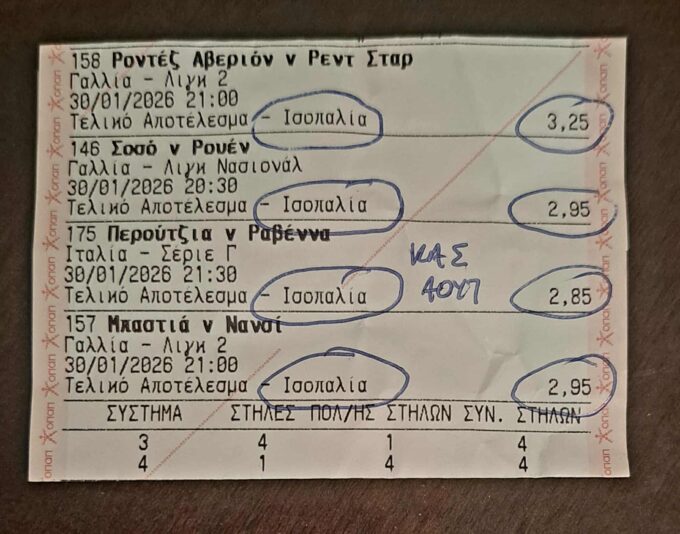 158 Ροντέζ Αβεριόν v Ρεντ Σταρ
Γαλλία - Λιγκ 2
30/01/2026 21:00
Τελικό Αποτέλεσμα - Ισοπαλία 3,25
146 Σοσό v Ρουέν
Γαλλία - Λιγκ Νασιονάλ
30/01/2026 20:30
Τελικό Αποτέλεσμα - Ισοπαλία 2,95
175 Περούτζια v Ραβέννα
Ιταλία - Σέριε Γ
30/01/2026 21:30
Τελικό Αποτέλεσμα - Ισοπαλία 2,85
ΚΑΣ
157 Μπαστιά v Νανσί
Γαλλία - Λιγκ 2
30/01/2026 21:00
Τελικό Αποτέλεσμα - Ισοπαλία 2,95
ΣΥΣΤΗΜΑ ΣΤΗΛΕΣ ΠΟΛ/ΗΣ ΣΤΗΛΩΝ ΣΥΝ. ΣΤΗΛΩΝ
3 4 1 4
4 1 4 4
οπαπ